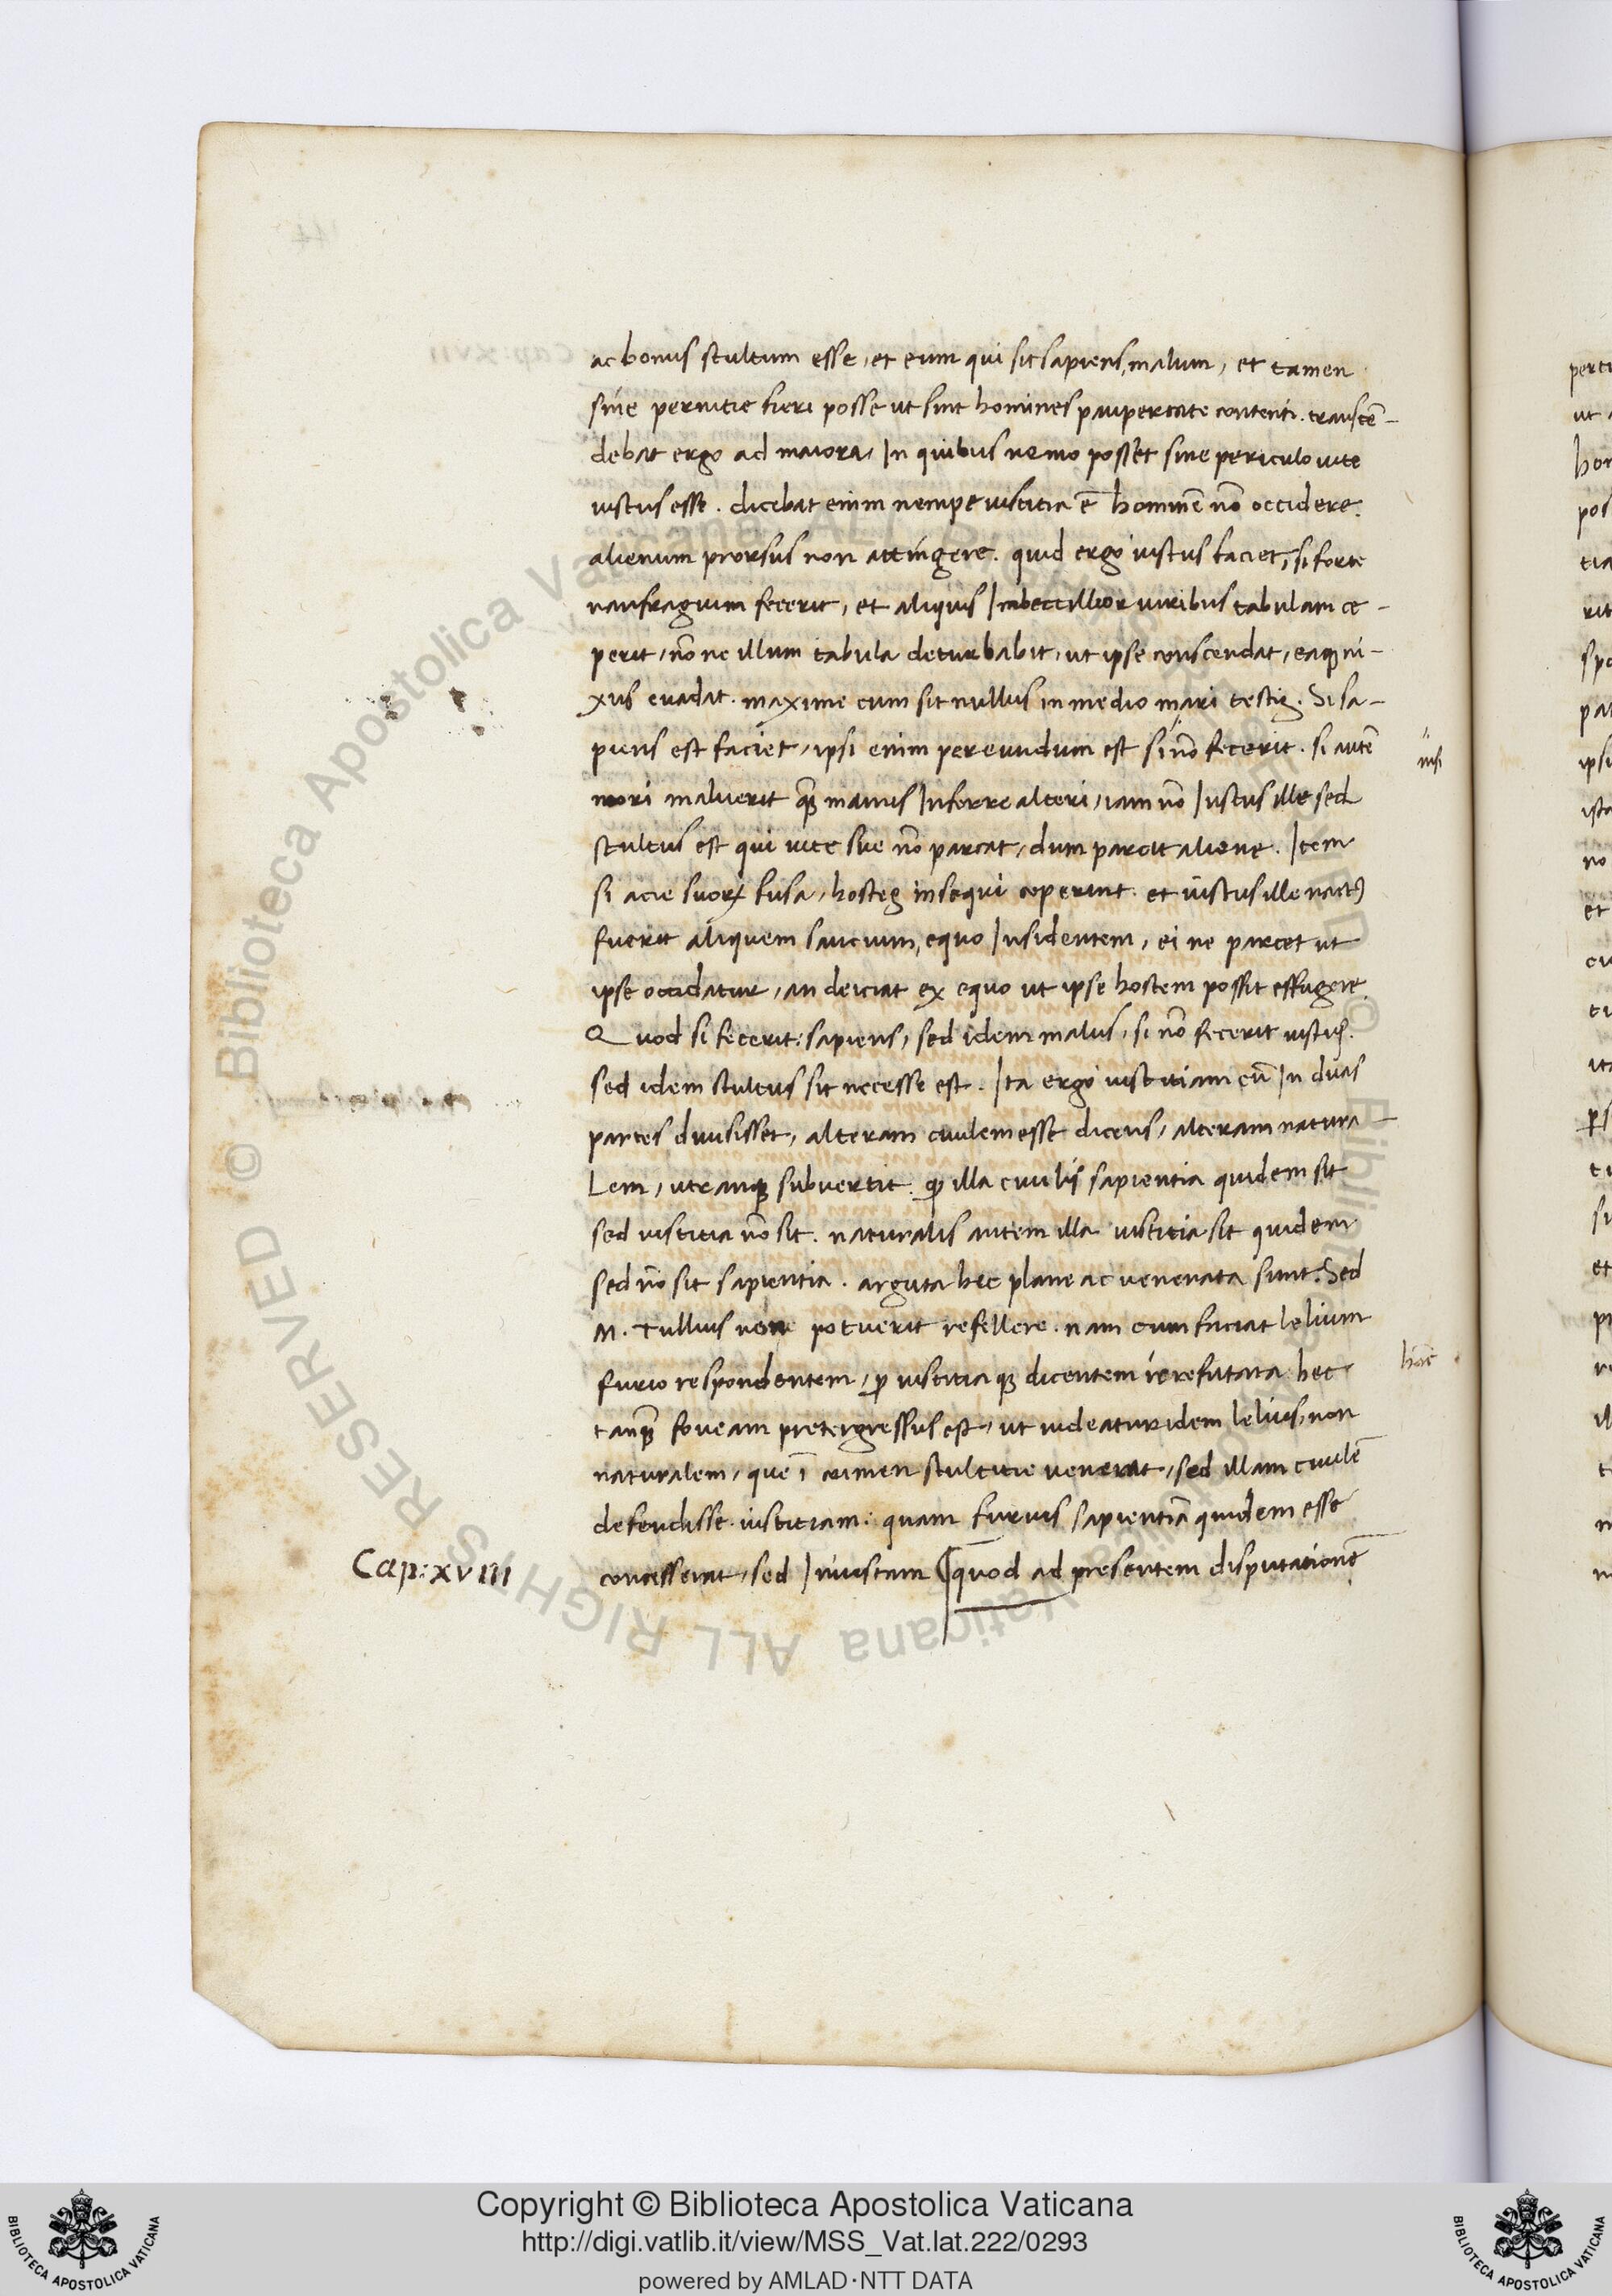 ac bonus stultum esse, et eum qui sit sapiens, malum, et tamen
sine pernitie fieri posse ut sint homines paupertate contenti. transcē-
debat ergo ad maiora, In quibus nemo posset sine periculo vite
iustus esse. dicebat enim nempe iustitia ē hominē nō occidere.
alienum prorsus non attingere. quid ergo iustus faciet, si forte
naufragium fecerit, et aliquis Imbeccillior viribus tabulam ce-
perit, nōne illum tabula deturbabit, ut ipse conscendat, eaq; ni-
xus evadat. maxime cum sit nullus in medio mari testis. Si sa-
piens est faciet, ipsi enim pereundum est si nō fecerit. si autē
nisi
mori maluerit quā manus Inferre alteri, iam nō Iustus ille sed
stultus est qui vite sue nō parcat, dum parcit aliene. Item
si acie suoꝝ fusa, hostes insequi ceperint. et iustus ille nactꝰ
fuerit aliquem saucium, equo Insidentem, ei ne parcet ut
ipse occidatur, an deiciat ex equo ut ipse hostem possit effugere.
Quod si fecerit: sapiens, sed idem malus, si nō fecerit iustus.
sed idem stultus sit necesse est. Ita ergo iustitiam cū In duas
partes divisisset, alteram civilem esse dicens, alteram natura-
Lem, utranq; subvertit. ꝙ illa civilis sapientia quidem sit
sed iustitia nō sit. naturalis autem illa iustitia sit quidem
sed nō sit sapientia. arguta hec plane ac venenata sunt. Sed
M. Tullius non potuerit refellere. nam cum faciat lelium
furio respondentem, ꝓ iustitiaq; dicentem irrefutata hec
hāc
tanquā foveam pretergressus est, ut videatur idem lelius, non
naturalem, que ī crimen stultitie venerat, sed illam civilē
defendisse iustitiam: quam furius sapientiā quidem esse
Cap: xviii
concesserat, sed Iniustam quod ad presentem disputationē
Copyright © Biblioteca Apostolica Vaticana
http://digi.vatlib.it/view/MSS_Vat.lat.222/0293
powered by AMLAD·NTT DATA